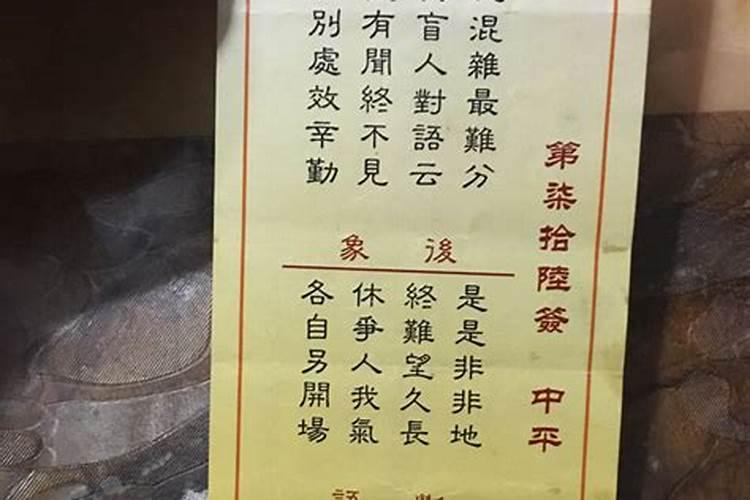 第柒拾陸簽 中平
混雜最難分
盲人對語云
有聞終不見
別處效辛勤
後象
是是非非地
終難望久長
休爭人我氣
各自另開場